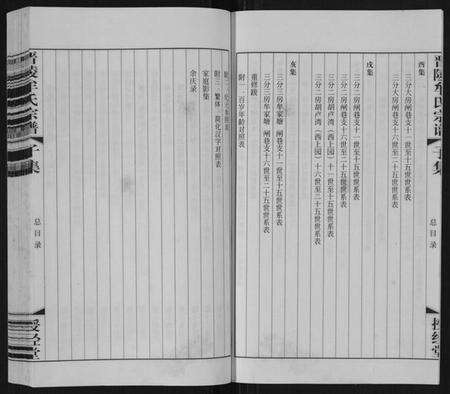 晋陵牟氏宗谱 子集
总目录
授经堂
酉集
三分大房闸巷支十一世至十五世世系表
三分大房闸巷支十六世至二十五世世系表
戌集
三分二房闸巷支十一世至十五世世系表
三分二房闸巷支十六世至二十五世世系表
三分二房胡卢湾（西上园）十一世至十五世世系表
三分二房胡卢湾（西上园）十六世至二十五世世系表
亥集
三分三房牟家塘 闸巷支十一世至十五世世系表
三分三房牟家塘 闸巷支十六世至二十五世世系表
重修跋
附一：百岁年龄对照表
附三：繁体 简化汉字对照表
家庭影集
余庆录
晋陵牟氏宗谱 子集
总目录
授经堂